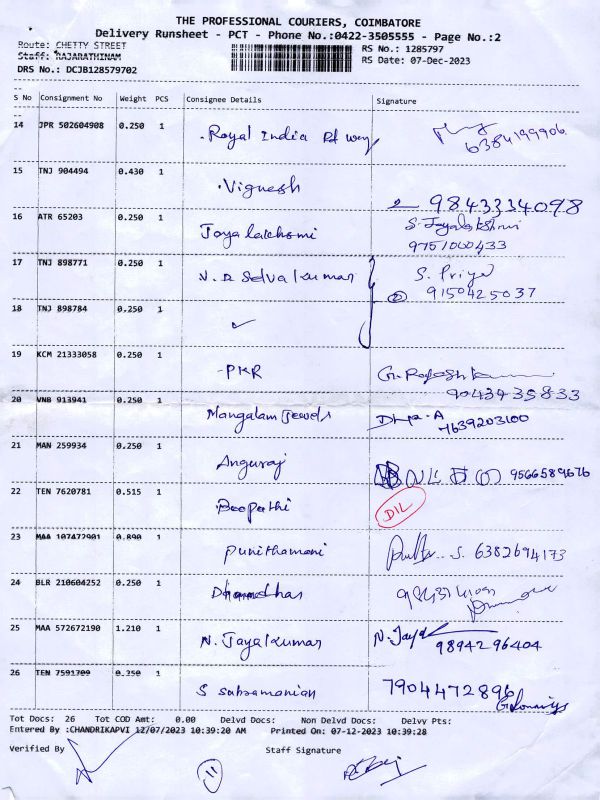 THE PROFESSIONAL COURIERS, COIMBATORE
Delivery Runsheet - PCT - Phone No.:0422-3505555 - Page No.:2
Route: CHETTY STREET
RS No.: 1285797
Staff: RAJARATHINAM
RS Date: 07-Dec-2023
DRS No.: DCJB128579702
S No Consignment No Weight PCS Consignee Details Signature
14 JPR 502604908 0.250 1 Royal India Rd way 6384199906
15 TNJ 904494 0.430 1 Vignesh 9843334098
16 ATR 65203 0.250 1 Jayalakshmi S. Jayalakshmi
9751060433
17 TNJ 898771 0.250 1 V. R Selvakumar S. Priya
9150425037
18 TNJ 898784 0.250 1
19 KCM 21333058 0.250 1 PKR
9043435833
20 VNB 913941 0.250 1 Mangalam Jewels
7639203100
21 MAN 259934 0.250 1 Anguraj 9566589676
22 TEN 7620781 0.515 1 Deepathi DIL
23 MAA 107472901 0.890 1 Punithamani S. 6382694173
24 BLR 210604252 0.250 1
25 MAA 572672190 1.210 1 N. Jayakumar N. Jaya
9894296404
26 TEN 7591709 0.350 1 S Subramanian 7904472896
Tot Docs: 26 Tot COD Amt: 0.00 Delvd Docs: Non Delvd Docs: Delvy Pts:
Entered By :CHANDRIKAPVI 12/07/2023 10:39:20 AM Printed On: 07-12-2023 10:39:28
Verified By Staff Signature
11